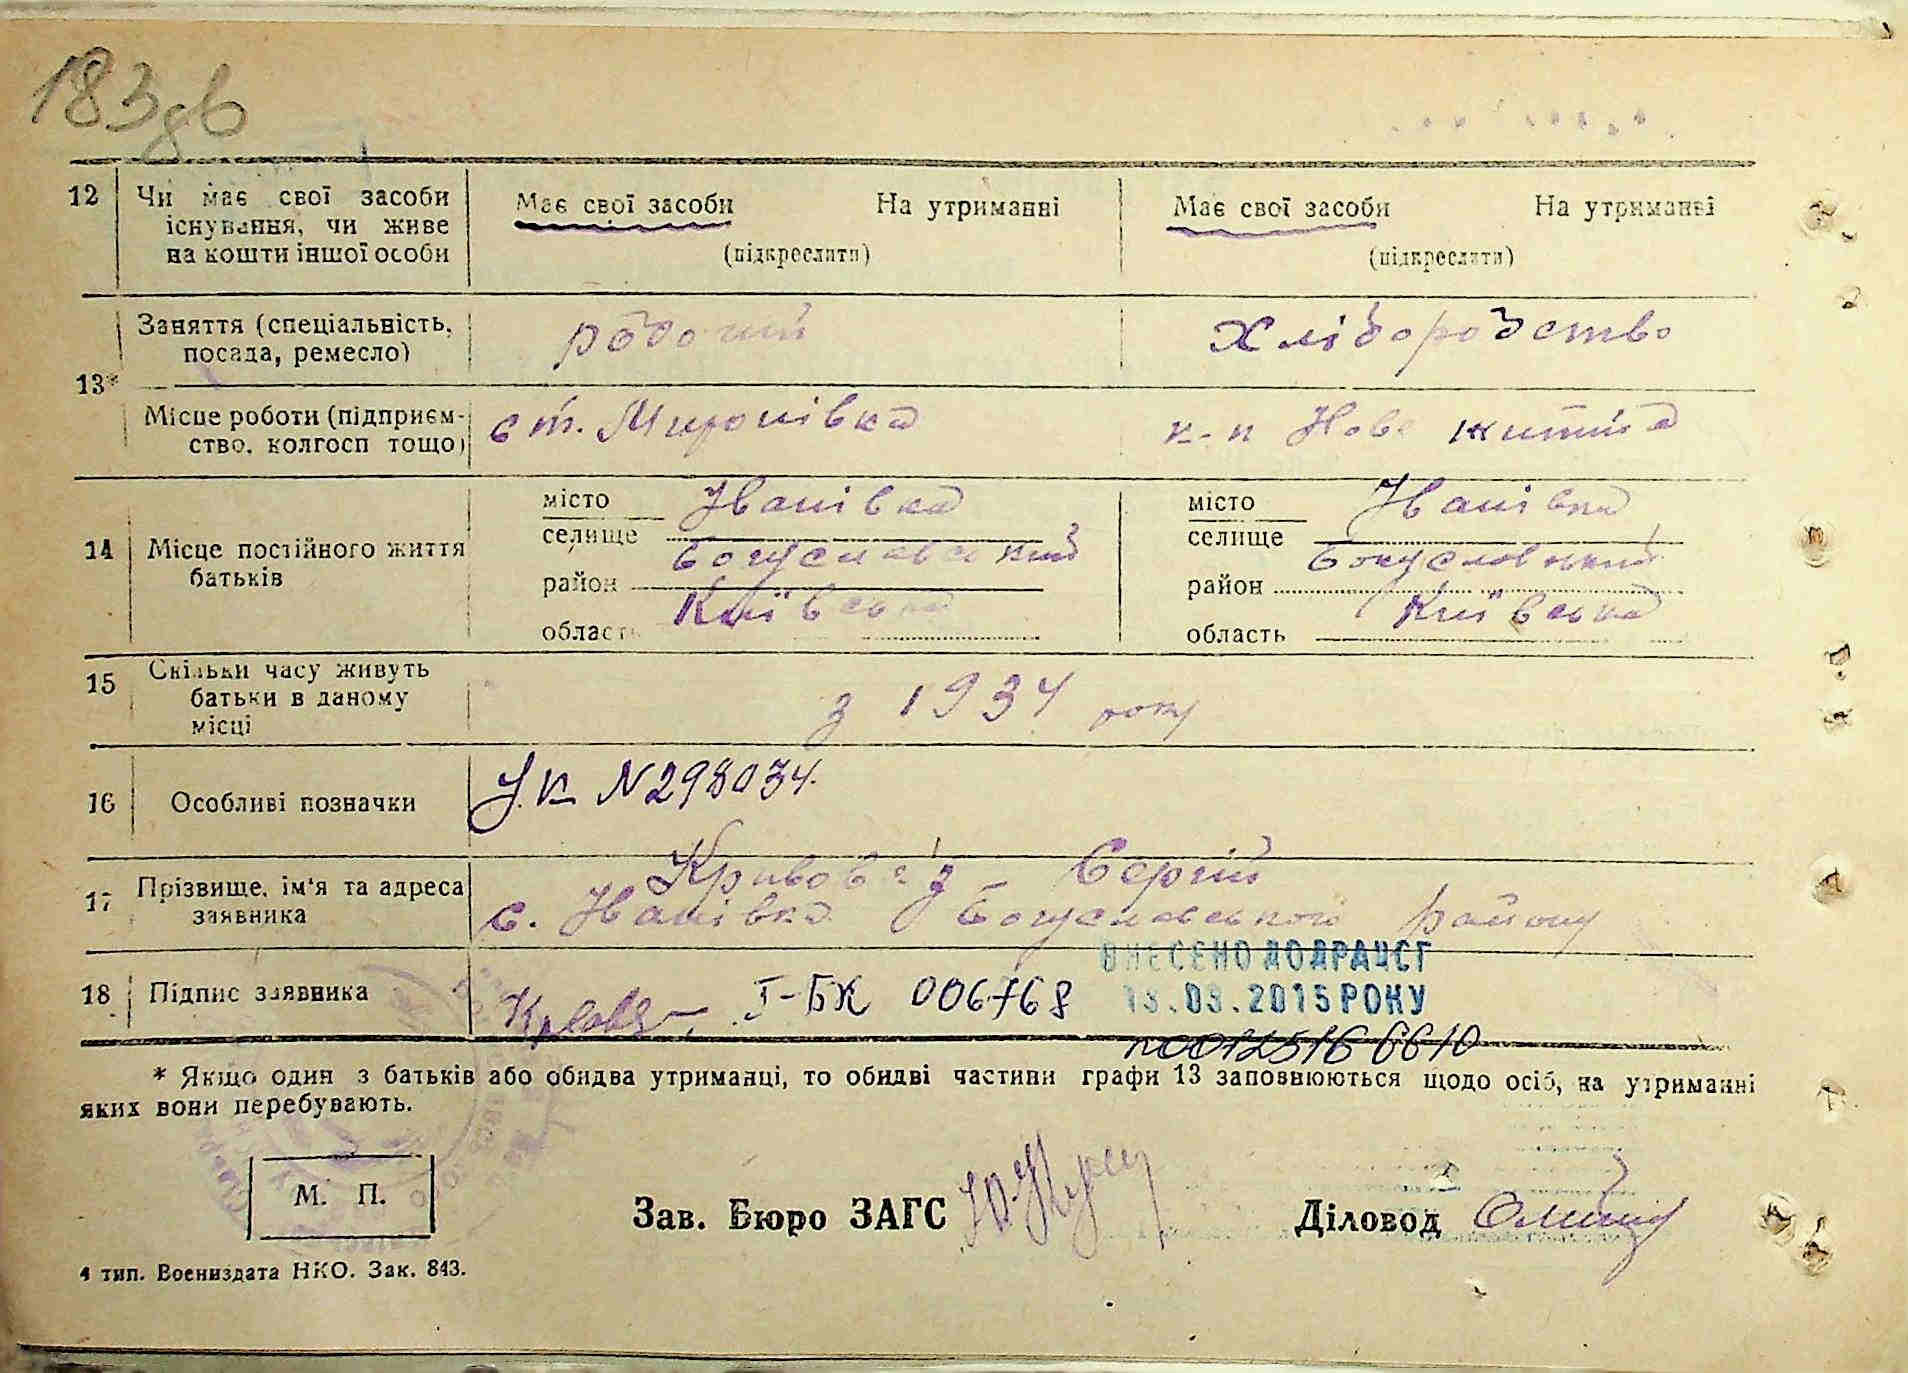 183зв
12 Чи має свої засоби існування, чи живе на кошти іншої особи
Має свої засоби На утриманні
(підкреслити)
Має свої засоби На утриманні
(підкреслити)
13*
Заняття (спеціальність, посада, ремесло)
робочий
Хліборобство
Місце роботи (підприємство, колгосп тощо)
ст. Миронівка
к-п Нове життя
14 Місце постійного життя батьків
місто
селище Іванівка
район Богуславський
область Київська
місто
селище Іванівка
район Богуславський
область Київська
15 Скільки часу живуть батьки в даному місці
з 1934 року
16 Особливі позначки
У.К. N298034.
17 Прізвище, ім'я та адреса заявника
Кривов'яз Сергій
с. Іванівка Богуславського району
18 Підпис заявника
І-БК 006768
ВНЕСЕНО ДО ДРАЦСГ
13.03.2015 РОКУ
n00125166610
* Якщо один з батьків або обидва утриманці, то обидві частини графи 13 заповнюються щодо осіб, на утриманні
яких вони перебувають.
М. П.
Зав. Бюро ЗАГС
Діловод
4 тип. Воениздата НКО. Зак. 843.